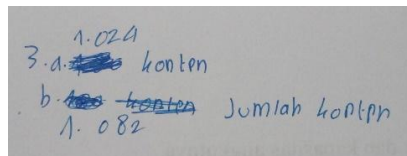 1.024
3.a. konten
b. konten Jumlah konten
1.082